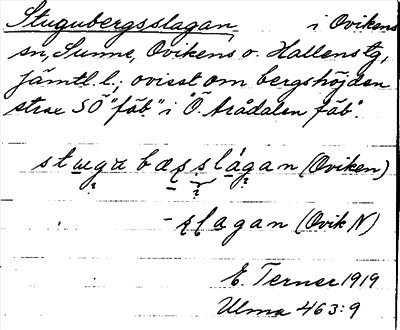 Stugubergsslagan, i Ovikens
sn, Sunne, Ovikens o. Hallens tg,
Jämtl. l.; ovisst om bergshöjden
strax SO "fäb." i "Ö. Arådalen fäb".
(Oviken)
-slagan (Ovik N)
E. Terner 1919
Ulma 463:9